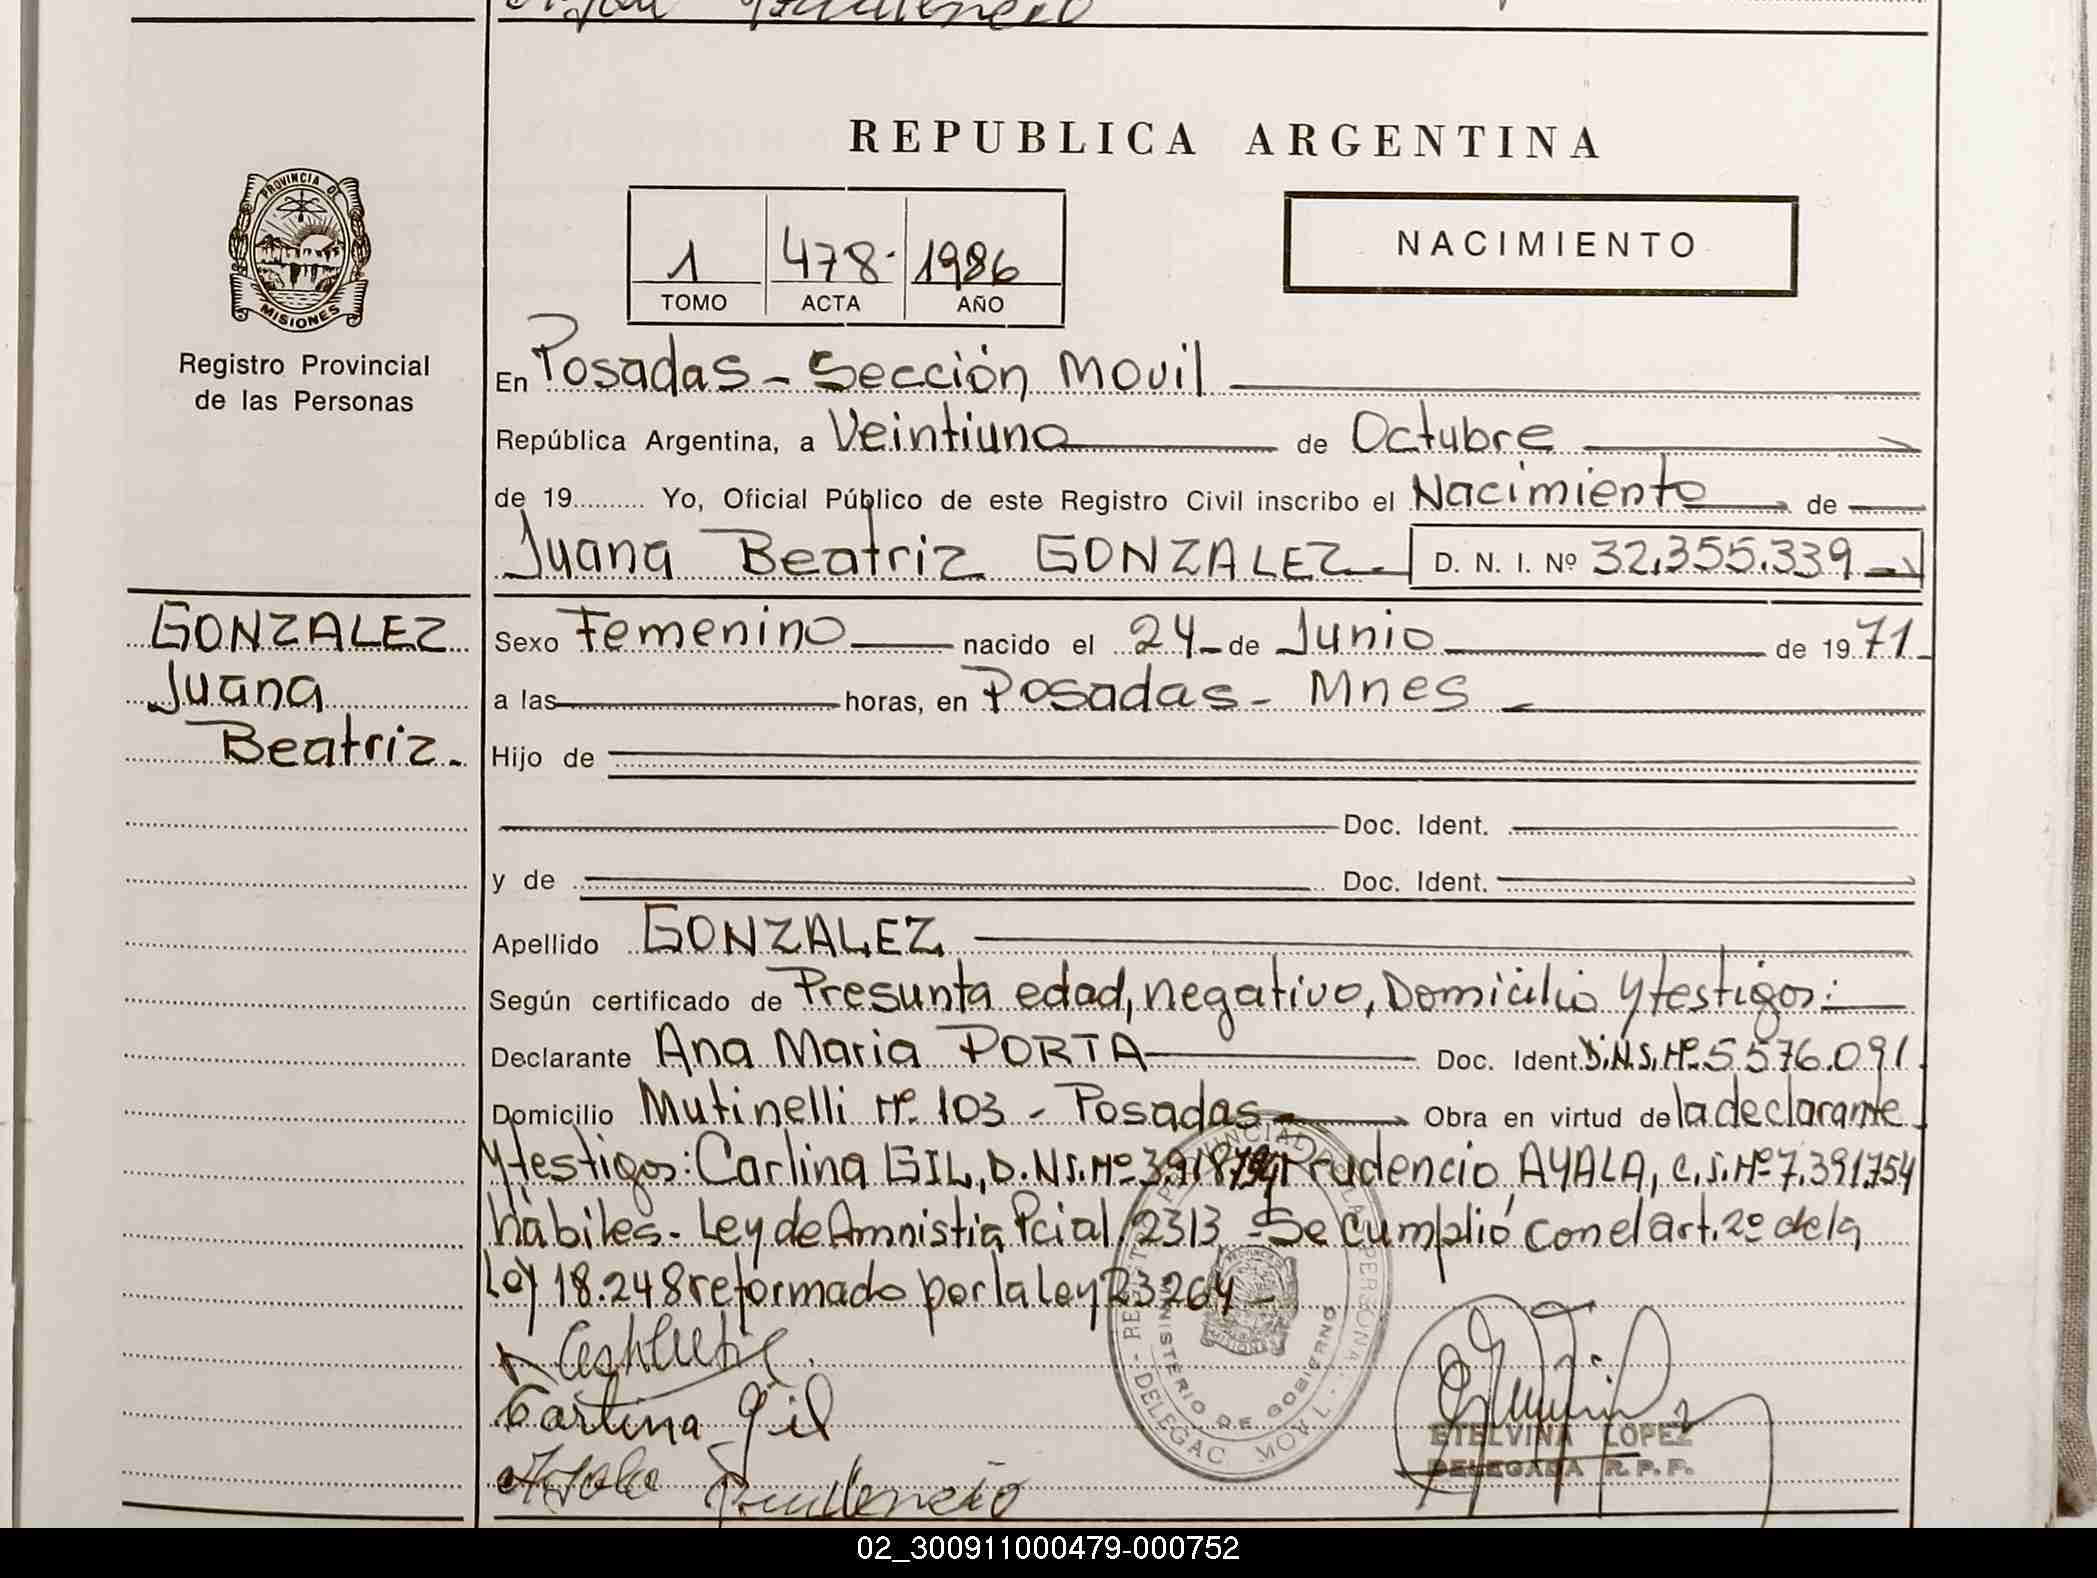 REPUBLICA ARGENTINA
PROVINCIA DE
MISIONES
Registro Provincial
de las Personas
1 478. 1986
TOMO ACTA AÑO
NACIMIENTO
En Posadas - Sección Movil
República Argentina, a Veintiuno de Octubre
de 19......... Yo, Oficial Público de este Registro Civil inscribo el Nacimiento de
Juana Beatriz GONZALEZ D. N. I. Nº 32.355.339
GONZALEZ
Juana
Beatriz.
Sexo Femenino nacido el 24 de Junio de 1971
a las horas, en Posadas - Mnes
Hijo de
Doc. Ident.
y de Doc. Ident.
Apellido GONZALEZ
Según certificado de Presunta edad, negativo, Domicilio y testigos:
Declarante Ana Maria PORTA Doc. Ident. D.N.I. Nº 5.576.091
Domicilio Mutinelli Nº 103 - Posadas Obra en virtud de la declarante
y testigos: Carlina GIL, D.N.I. Nº Prudencio AYALA, C.I. Nº 7.391.754
hábiles - Ley de Amnistia Pcial. 2313 - Se cumplió con el art. 2º de la
Ley 18.248 reformado por la Ley 23264 -
Carlina Gil
Ayala Prudencio
REGISTRO PROVINCIAL DE LAS PERSONAS
MINISTERIO DE GOBIERNO
DELEGAC MOVIL
ETELVINA LOPEZ
DELEGADA R. P. P.
02_300911000479-000752